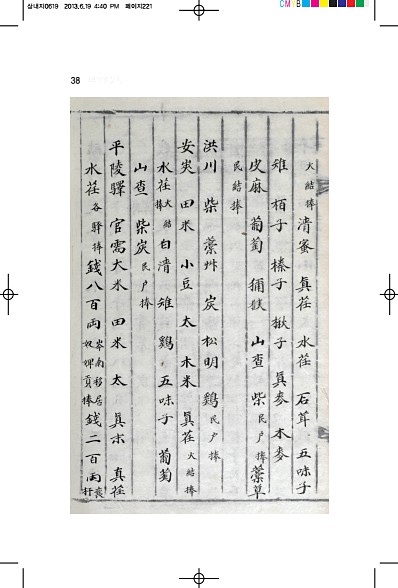 삼내지0619 2013.6.19 4:40 PM 페이지221
CMYB
38
大結捧 清蜜 眞荏 水荏 石茸 五味子
雉 栢子 榛子 楸子 眞麥 木麥
皮麻 葡萄 獼猴 山查 柴 民户捧 藁草
民結捧
洪川 柴 藁艸 炭 松明 鷄 民户捧
安炭 田米 小豆 太 木米 眞荏 大結捧
水荏 大結捧 白清 雉 鷄 五味子 葡萄
山查 柴炭 民户捧
平陵驛 官需大米 田米 太 眞末 真荏
水荏 各驛捧 錢八百両 嶺南移居奴婢貢捧 錢二百両